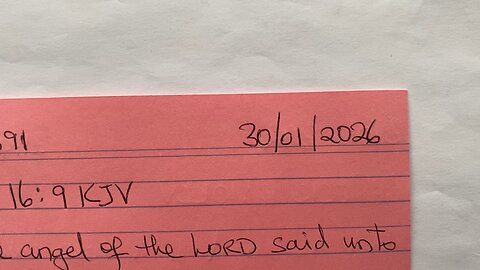 91 30/01/2026
16:9 KJV
angel of the LORD said unto